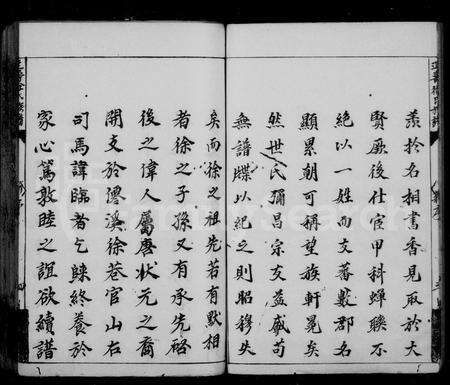 羨於名相書香見取於大
賢厥後仕宦甲科蟬聯不
絶以一姓而文蕃數郡名
顯累朝可稱望族軒冕矣
然世氏彌昌宗友益盛苟
無譜牒以紀之則昭穆失
矣而徐之祖先若有默相
者徐之子孫又有承先啟
後之偉人屬唐狀元之裔
開支於僊溪徐巷官山右
司馬諱臨者乞歸終養於
家心篤敦睦之誼欲續譜